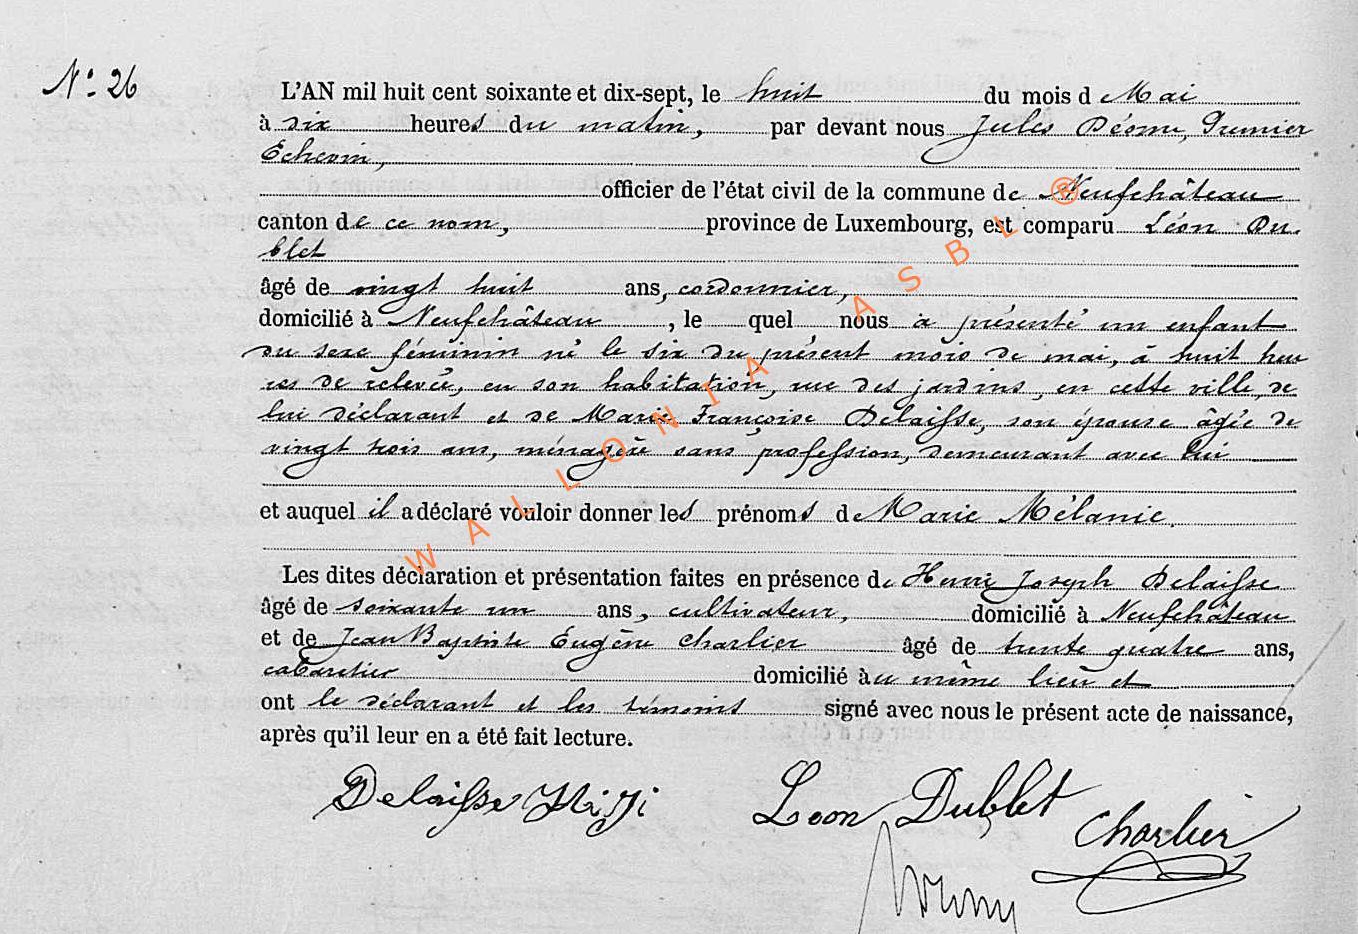 N° 26
L'AN mil huit cent soixante et dix-sept, le huit du mois d Mai
à dix heures du matin, par devant nous Jules Premier
Echevin,
officier de l'état civil de la commune de Neufchâteau
canton de ce nom, province de Luxembourg, est comparu Léon Du-
blet
âgé de vingt huit ans, cordonnier,
domicilié à Neufchâteau, le quel nous a présenté un enfant
du sexe féminin né le six du présent mois de mai, à huit heu
res de relevée, en son habitation, rue des jardins, en cette ville, de
lui déclarant et de Marie Françoise Delaisse, son épouse âgée de
vingt trois ans, ménagère sans profession, demeurant avec lui
et auquel il a déclaré vouloir donner les prénoms de Marie Mélanie.
Les dites déclaration et présentation faites en présence de Henri Joseph Delaisse
âgé de soixante un ans, cultivateur, domicilié à Neufchâteau
et de Jean Baptiste Eugène Charlier âgé de trente quatre ans,
cabaretier domicilié au même lieu et
ont le déclarant et les témoins signé avec nous le présent acte de naissance,
après qu'il leur en a été fait lecture.
Delaisse Léon Dublet Charlier
WALLONIA ASBL ®